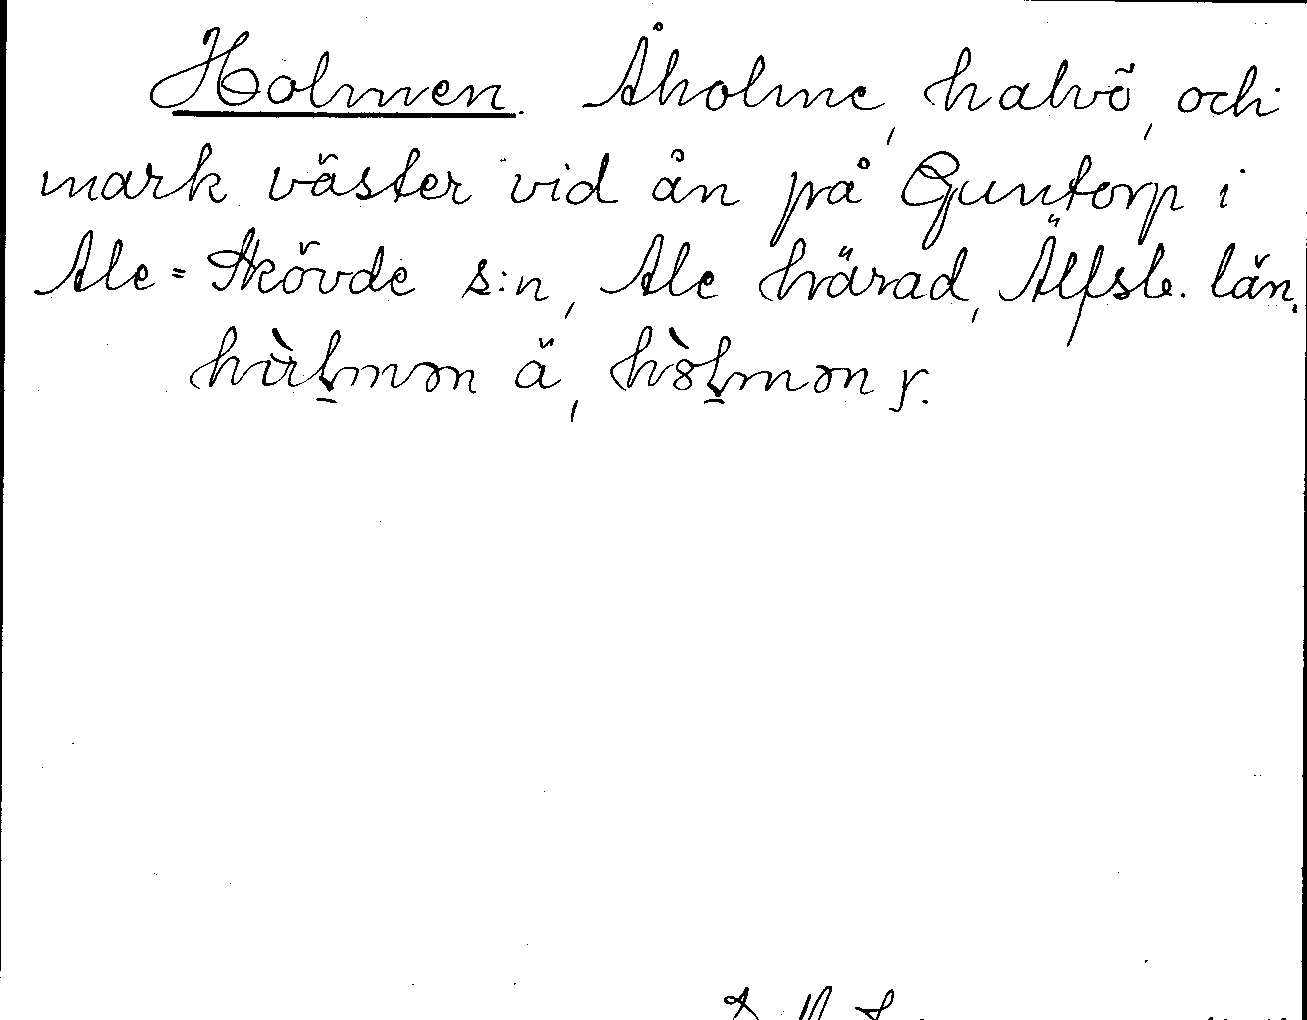 Holmen. Åholme, halvö, och
mark väster vid ån på Guntorp i
Ale=Skövde s:n, Ale härad, Älfsb. län.
hùḻmən ä, hòḻmən y.